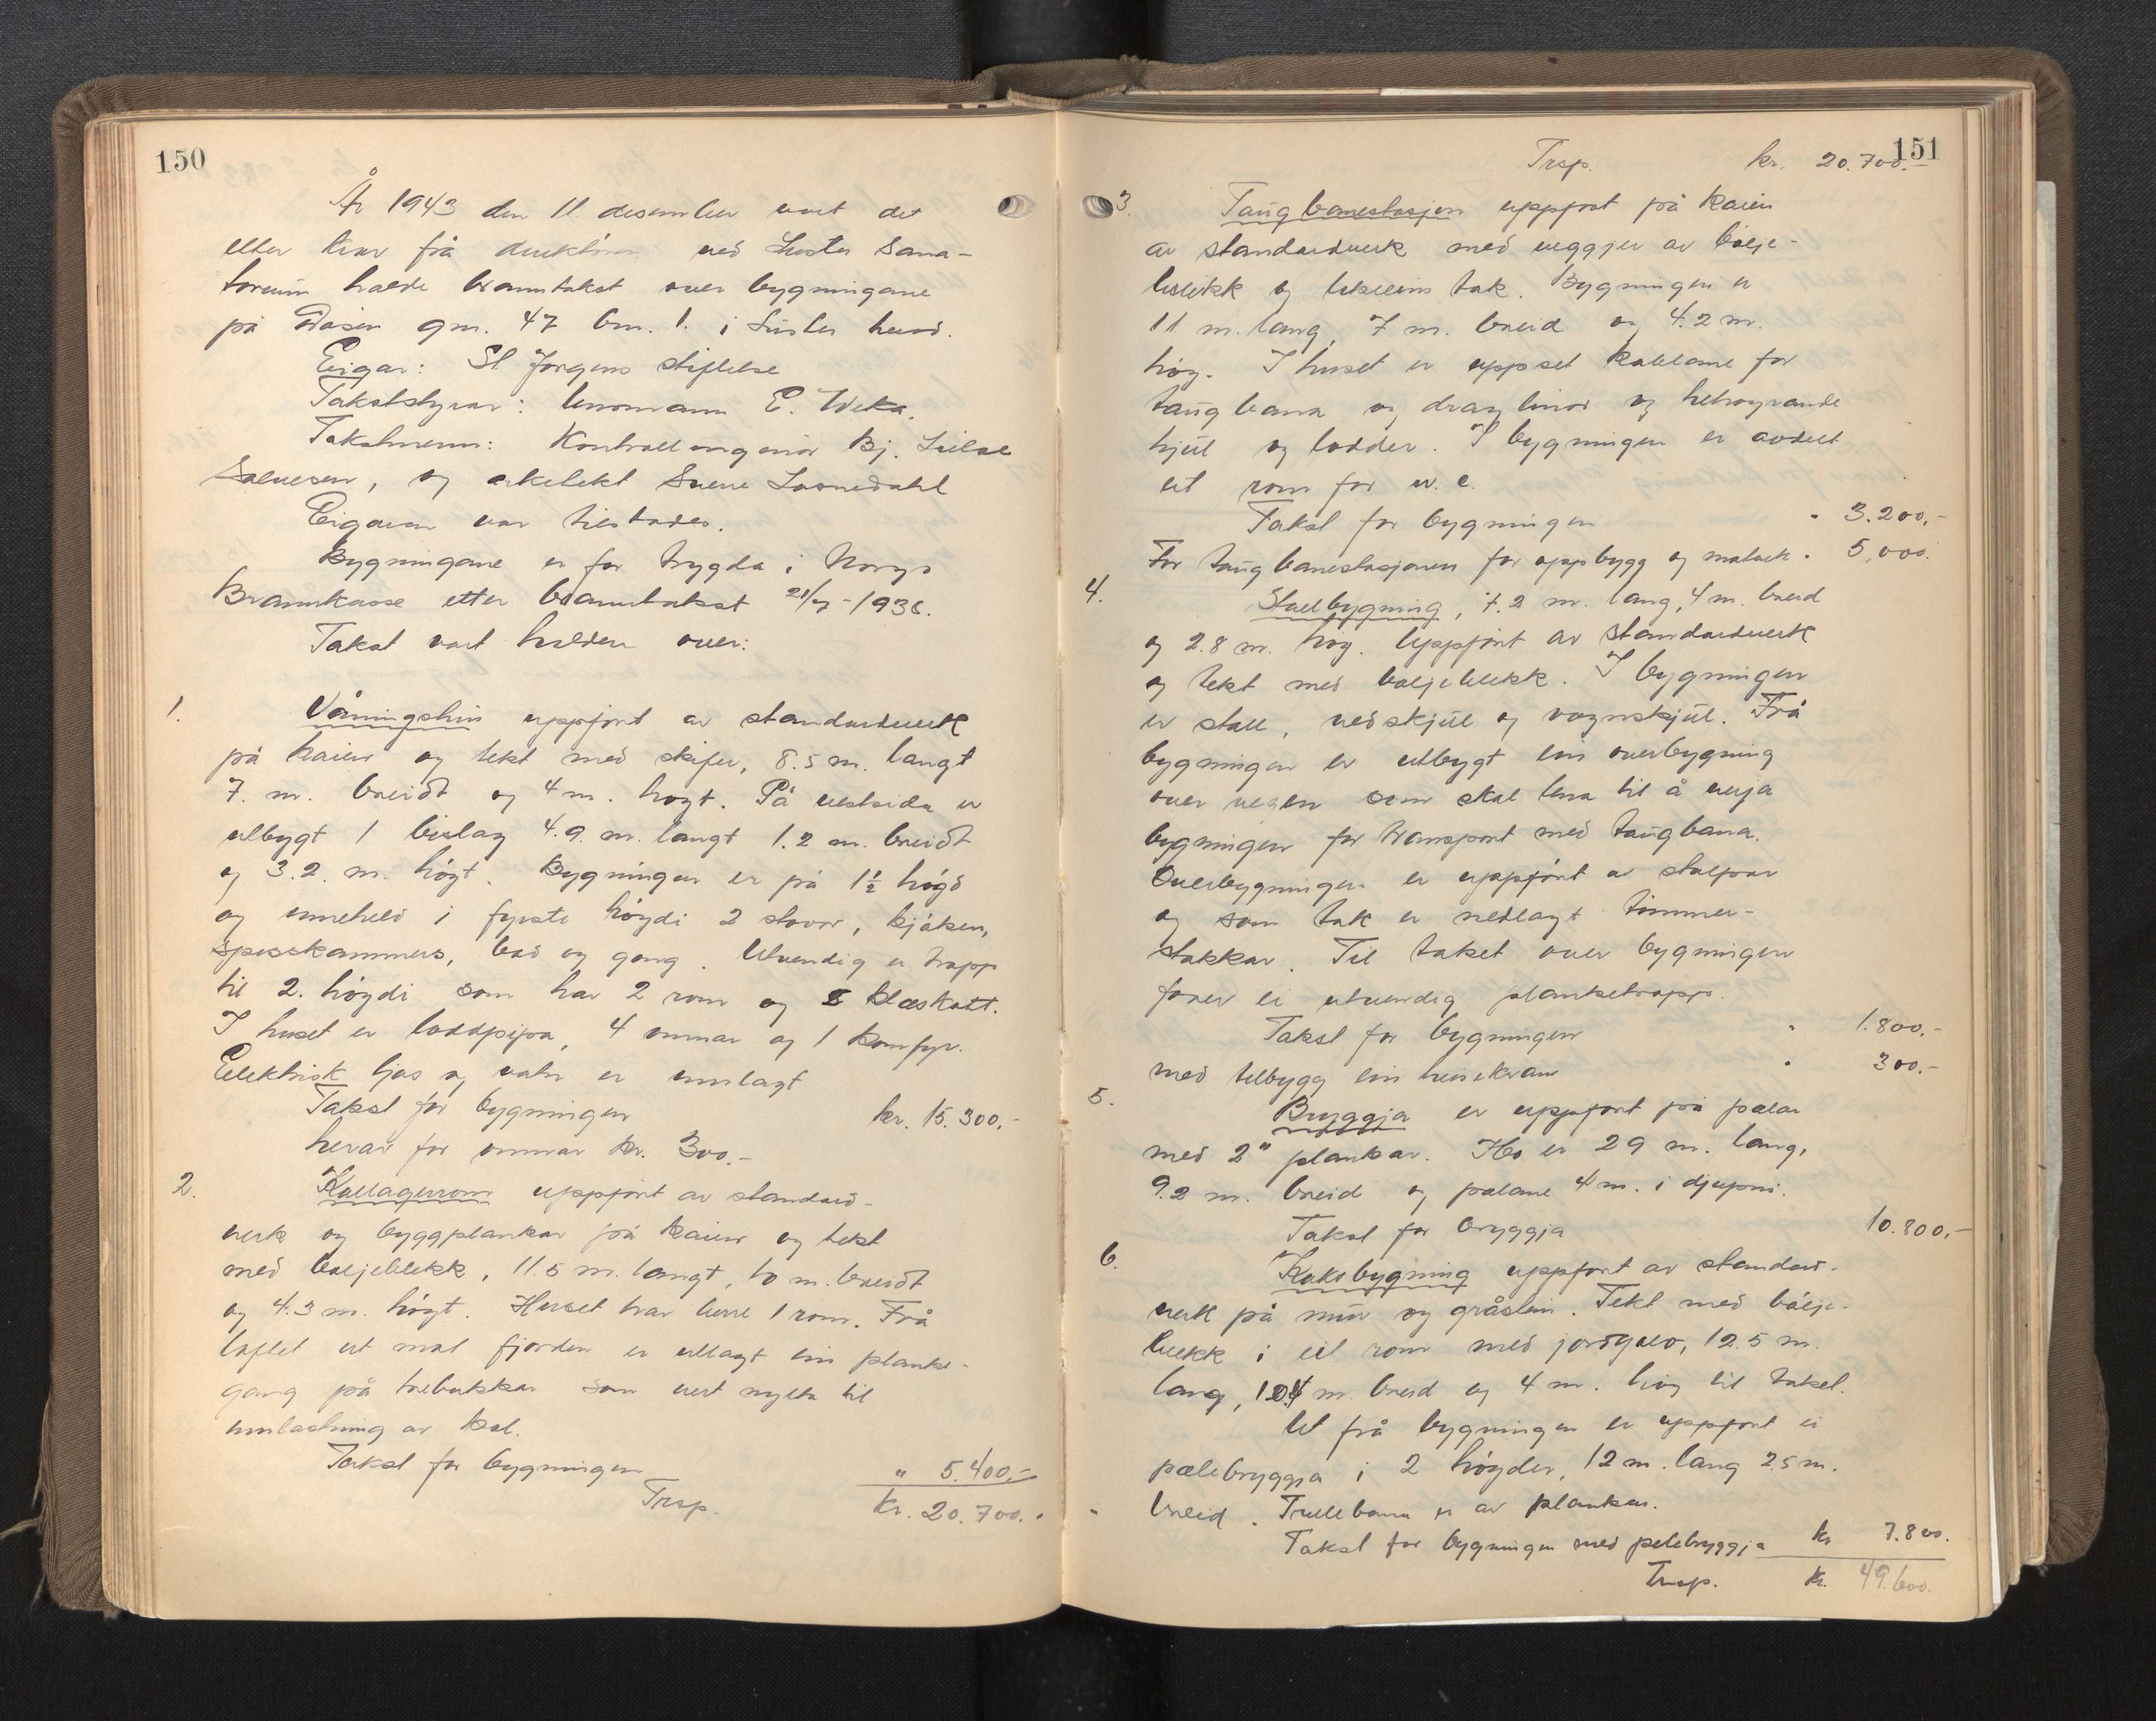 150
År 1943 den 11. desember vart det
etter krav frå direktören ved Luster Sana-
torium halde branntakst over bygningane
på gnr. 47 bnr. 1. i Luster herad.
Eigar: St Jørgens stiftelse
Takststyrar: lensmann E.
Takstmenn: Kontrollingeniør Bj.
Salvesen, og arkitekt Sverre
Eigaren var tilstades.
Bygningane er for trygda i Norges
Brannkasse etter branntakst 21/7-1936.
Takst vart halden over:
1. Våningshus uppført av standardverk
på kaien og tekt med skifer, 8.5 m. langt
7. m. breidt og 4 m. høgt. På vestsida er
utbygt 1 bislag 4.9. m. langt 1.2 m. breidt
og 3.2. m. høgt. Bygningen er på 1½ høgd
og inneheld i fyrste høgdi 2 stovor, kjøken,
spisskammers, bad og gong. Utvendig er trapp
til 2. høgdi som har 2 rom og klæskott.
I huset er loddpipa, 4 omnar og 1 komfyr.
Elektrisk ljos og vatn er innlagt
Takst for bygningen kr. 15.300.-
herav for omnar kr. 300.-
2. Kollagerrom uppført av standard-
verk og byggplankar på kaien og tekt
med bølgeblekk, 11.5 m. langt, 10 m. breidt
og 4.3 m. høgt. Huset har berre 1 rom. Frå
loftet ut mot fjorden er utlagt ein planke-
gang på trebukkar som vert nytta til
umlastning av kol.
Takst for bygningen " 5.400.-
Trsp. kr. 20.700.-
151
Trsp. kr. 20.700.-
3. Taugbanestasjon uppført på kaien
av standardverk med veggjer av bølje-
blekk og likeeins tak. Bygningen er
11 m. lang, 7 m. breid og 4.2 m.
høg. I huset er uppset kablane for
taugbana og draglinor og
hjul og lodder. I bygningen er avdelt
eit rom for w. c.
Takst for bygningen " 3.200.-
For taugbanestasjonen for oppbygg og " 5.000.
4. Stallbygning, 7.2 m. lang, 4 m. breid
og 2.8 m. høg. Uppført av standardverk
og tekt med bøljeblekk. I bygningen
er stall, vedskjul og vognskjul. Frå
bygningen er utbygt ein overbygning
over vegen som skal tena til å verja
bygningen for transport med taugbana.
Overbygningen er uppført av stolpar
og som tak er nedlagt tømmer-
stokkar. Til taket over bygningen
fører ei utvendig planketrapp.
Takst for bygningen " 1.800.-
med tilbygg ein heisekran " 300.-
5. Bryggja er uppført på pælar
med 2" plankar. Ho er 29 m. lang,
9.2 m. breid og pælane 4 m. i djupni.
Takst for bryggja 10.800.-
6. Koksbygning uppført av standard-
verk på mur og gråstein. Tekt med bølje-
blekk i eit rom med jordgolv, 12.5 m.
lang, m. breid og 4 m. høg til taket.
Ut frå bygningen er uppført ei
pælebryggja i 2 høgder, 12 m. lang 2.5 m.
breid. Trallebana er av plankar.
Takst for bygningen med pelebryggja kr 7.800.
Trsp. kr. 49.600.